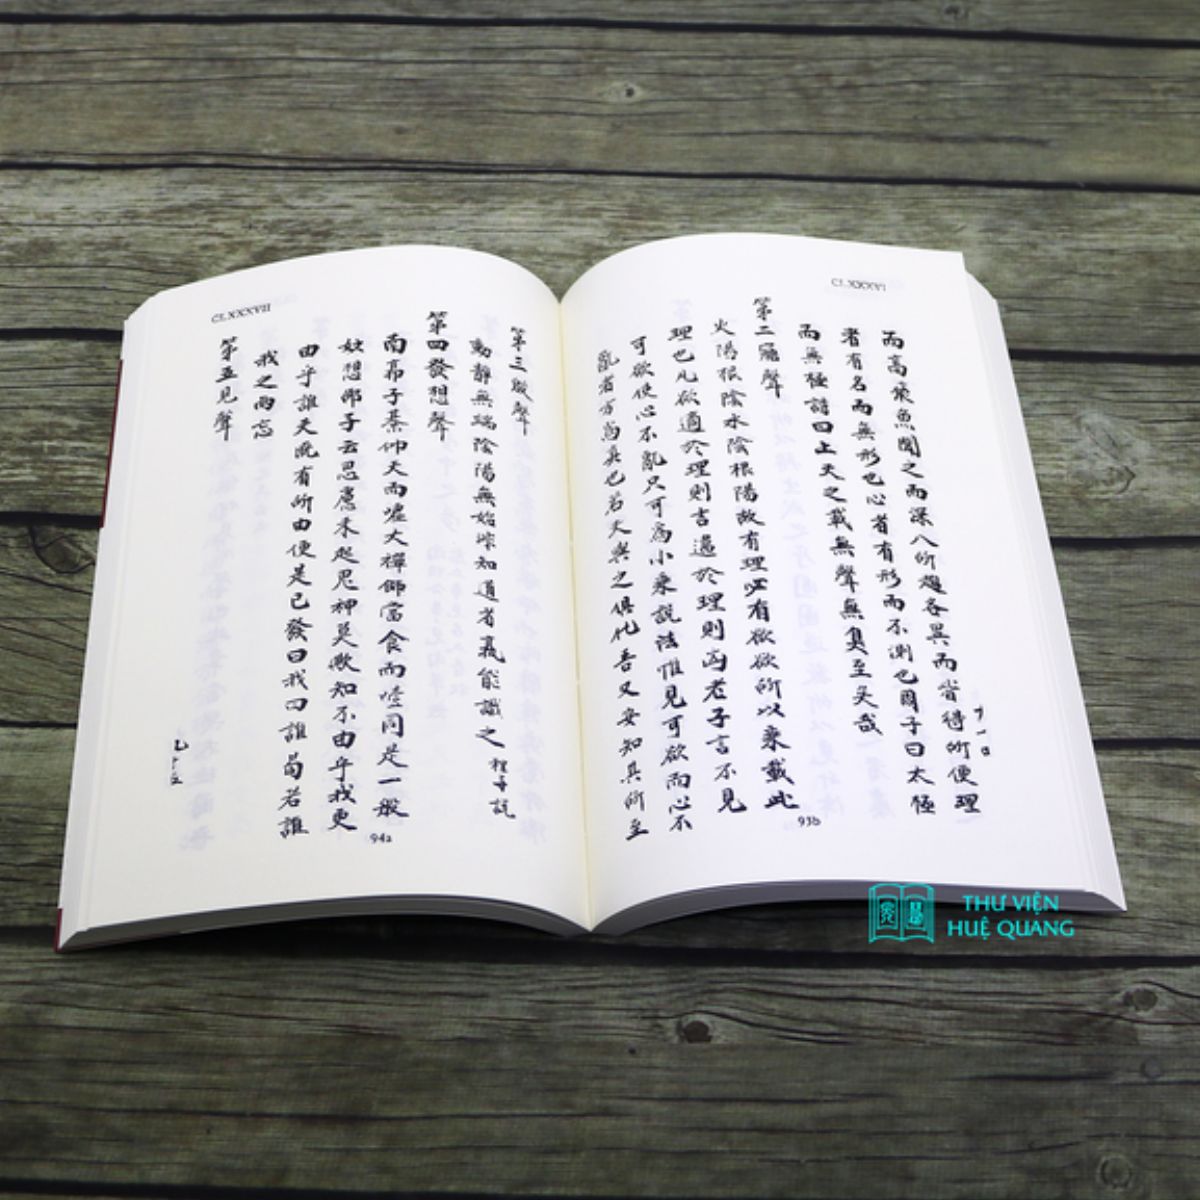 CLXXXVI
而高飛魚聞之而深入所趣各異而皆待所便理
者有名而無形也心者有形而不測也周子曰太極
而無極詩曰上天之載無聲無臭至矣哉
第二 聲
火陽根陰水陰根陽故有理必有欲欲所以乘載此
理也凡欲適於理則吉違於理則凶老子言不見
可欲使心不亂只可為小乘說法惟見可欲而心不
亂者方為真也若夫與之俱化吾又安知其所至
93b
CLXXXVII
第三發聲
動靜無端陰陽無始惟知道者孰能識之 程子說
第四發想聲
南帛子綦仰天而噓大禪師當食而噎同是一般
妙想邵子云思慮未起鬼神莫欺知不由乎我更
由乎誰夫既有所由便是已發曰我曰誰苟若誰
我之兩忘
第五見聲
94a
THƯ VIỆN
HUỆ QUANG